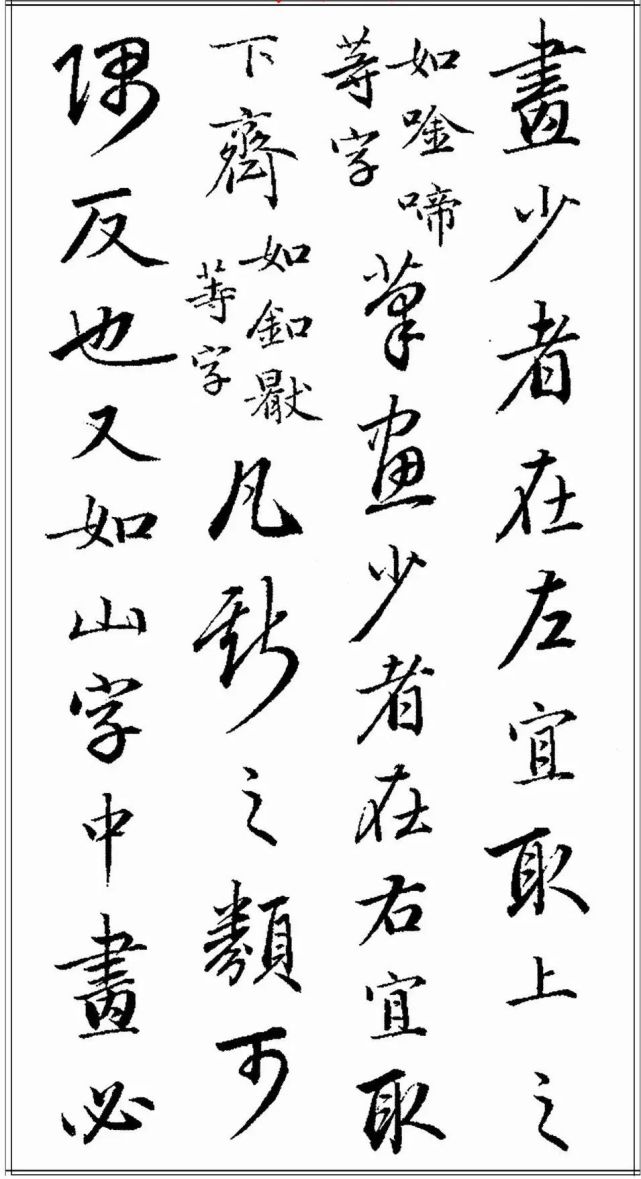 畫少者在左宜取上之
如唫啼
等字
筆畫少者在右宜取
下齊
如釦
等字
凡斯之類可
隅反也又如山字中畫必